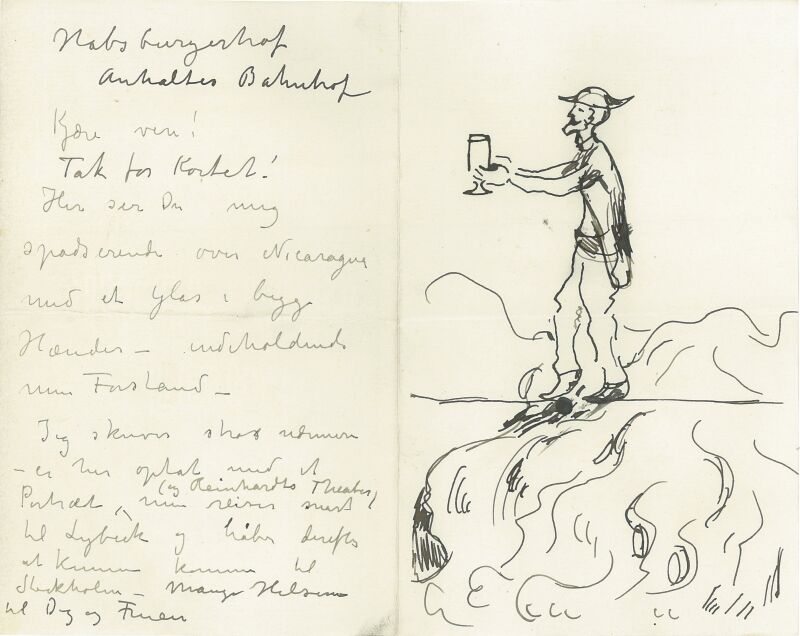 Habsburgerhof
Anhalter Bahnhof
Kjære ven!
Tak for Kortet!
Her ser Du mig
spadserende over Nicaragua
med et Glas i begge
Hænder – indeholdende
min Forstand –
Jeg skriver strax nærmere
– er her optat med et
(og Reinhardts Theater)
Portræt, men reiser snart
til Lybeck og håber derefter
at kunne komme til
Stockholm – Mange Hilsener
til Dig og Fruen